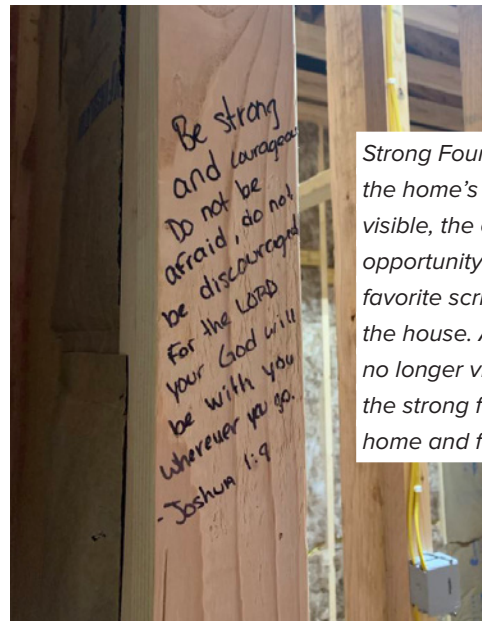 Be strong
and courageous
Do not be
afraid, do not
be discouraged
For the LORD
your God will
be with you
wherever you go.
- Joshua 1:9
Strong Four
the home's
visible, the
opportunity
favorite scri
the house. A
no longer vi
the strong f
home and f